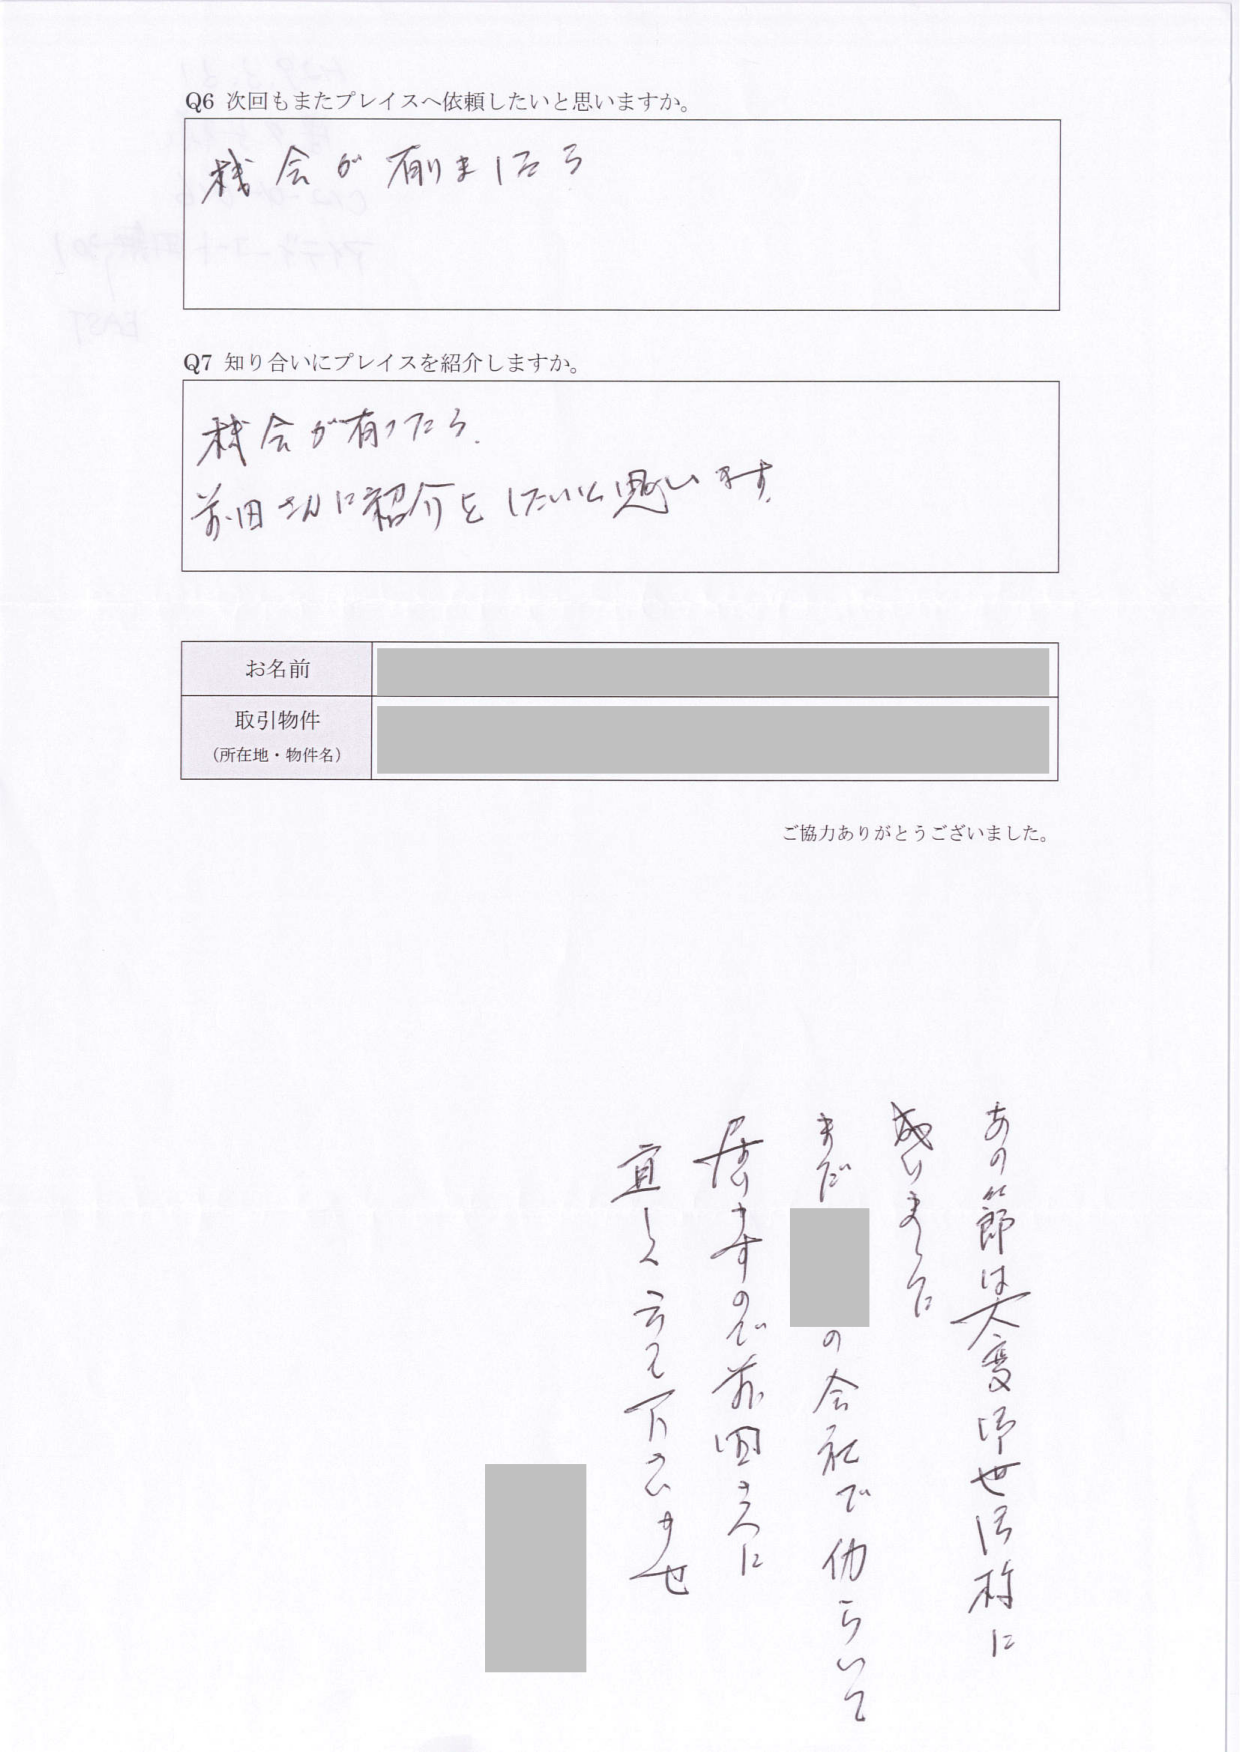 Q6 次回もまたプレイスへ依頼したいと思いますか。
機会が有りましたら
Q7 知り合いにプレイスを紹介しますか。
機会が有ったら、
前田さんに紹介をしたいと思います。
お名前
取引物件
（所在地・物件名）
ご協力ありがとうございました。
あの節は大変御世話様に
成りました
まだ
の会社で働らいて
居りますので前田さんに
宜しく云って下さいませ